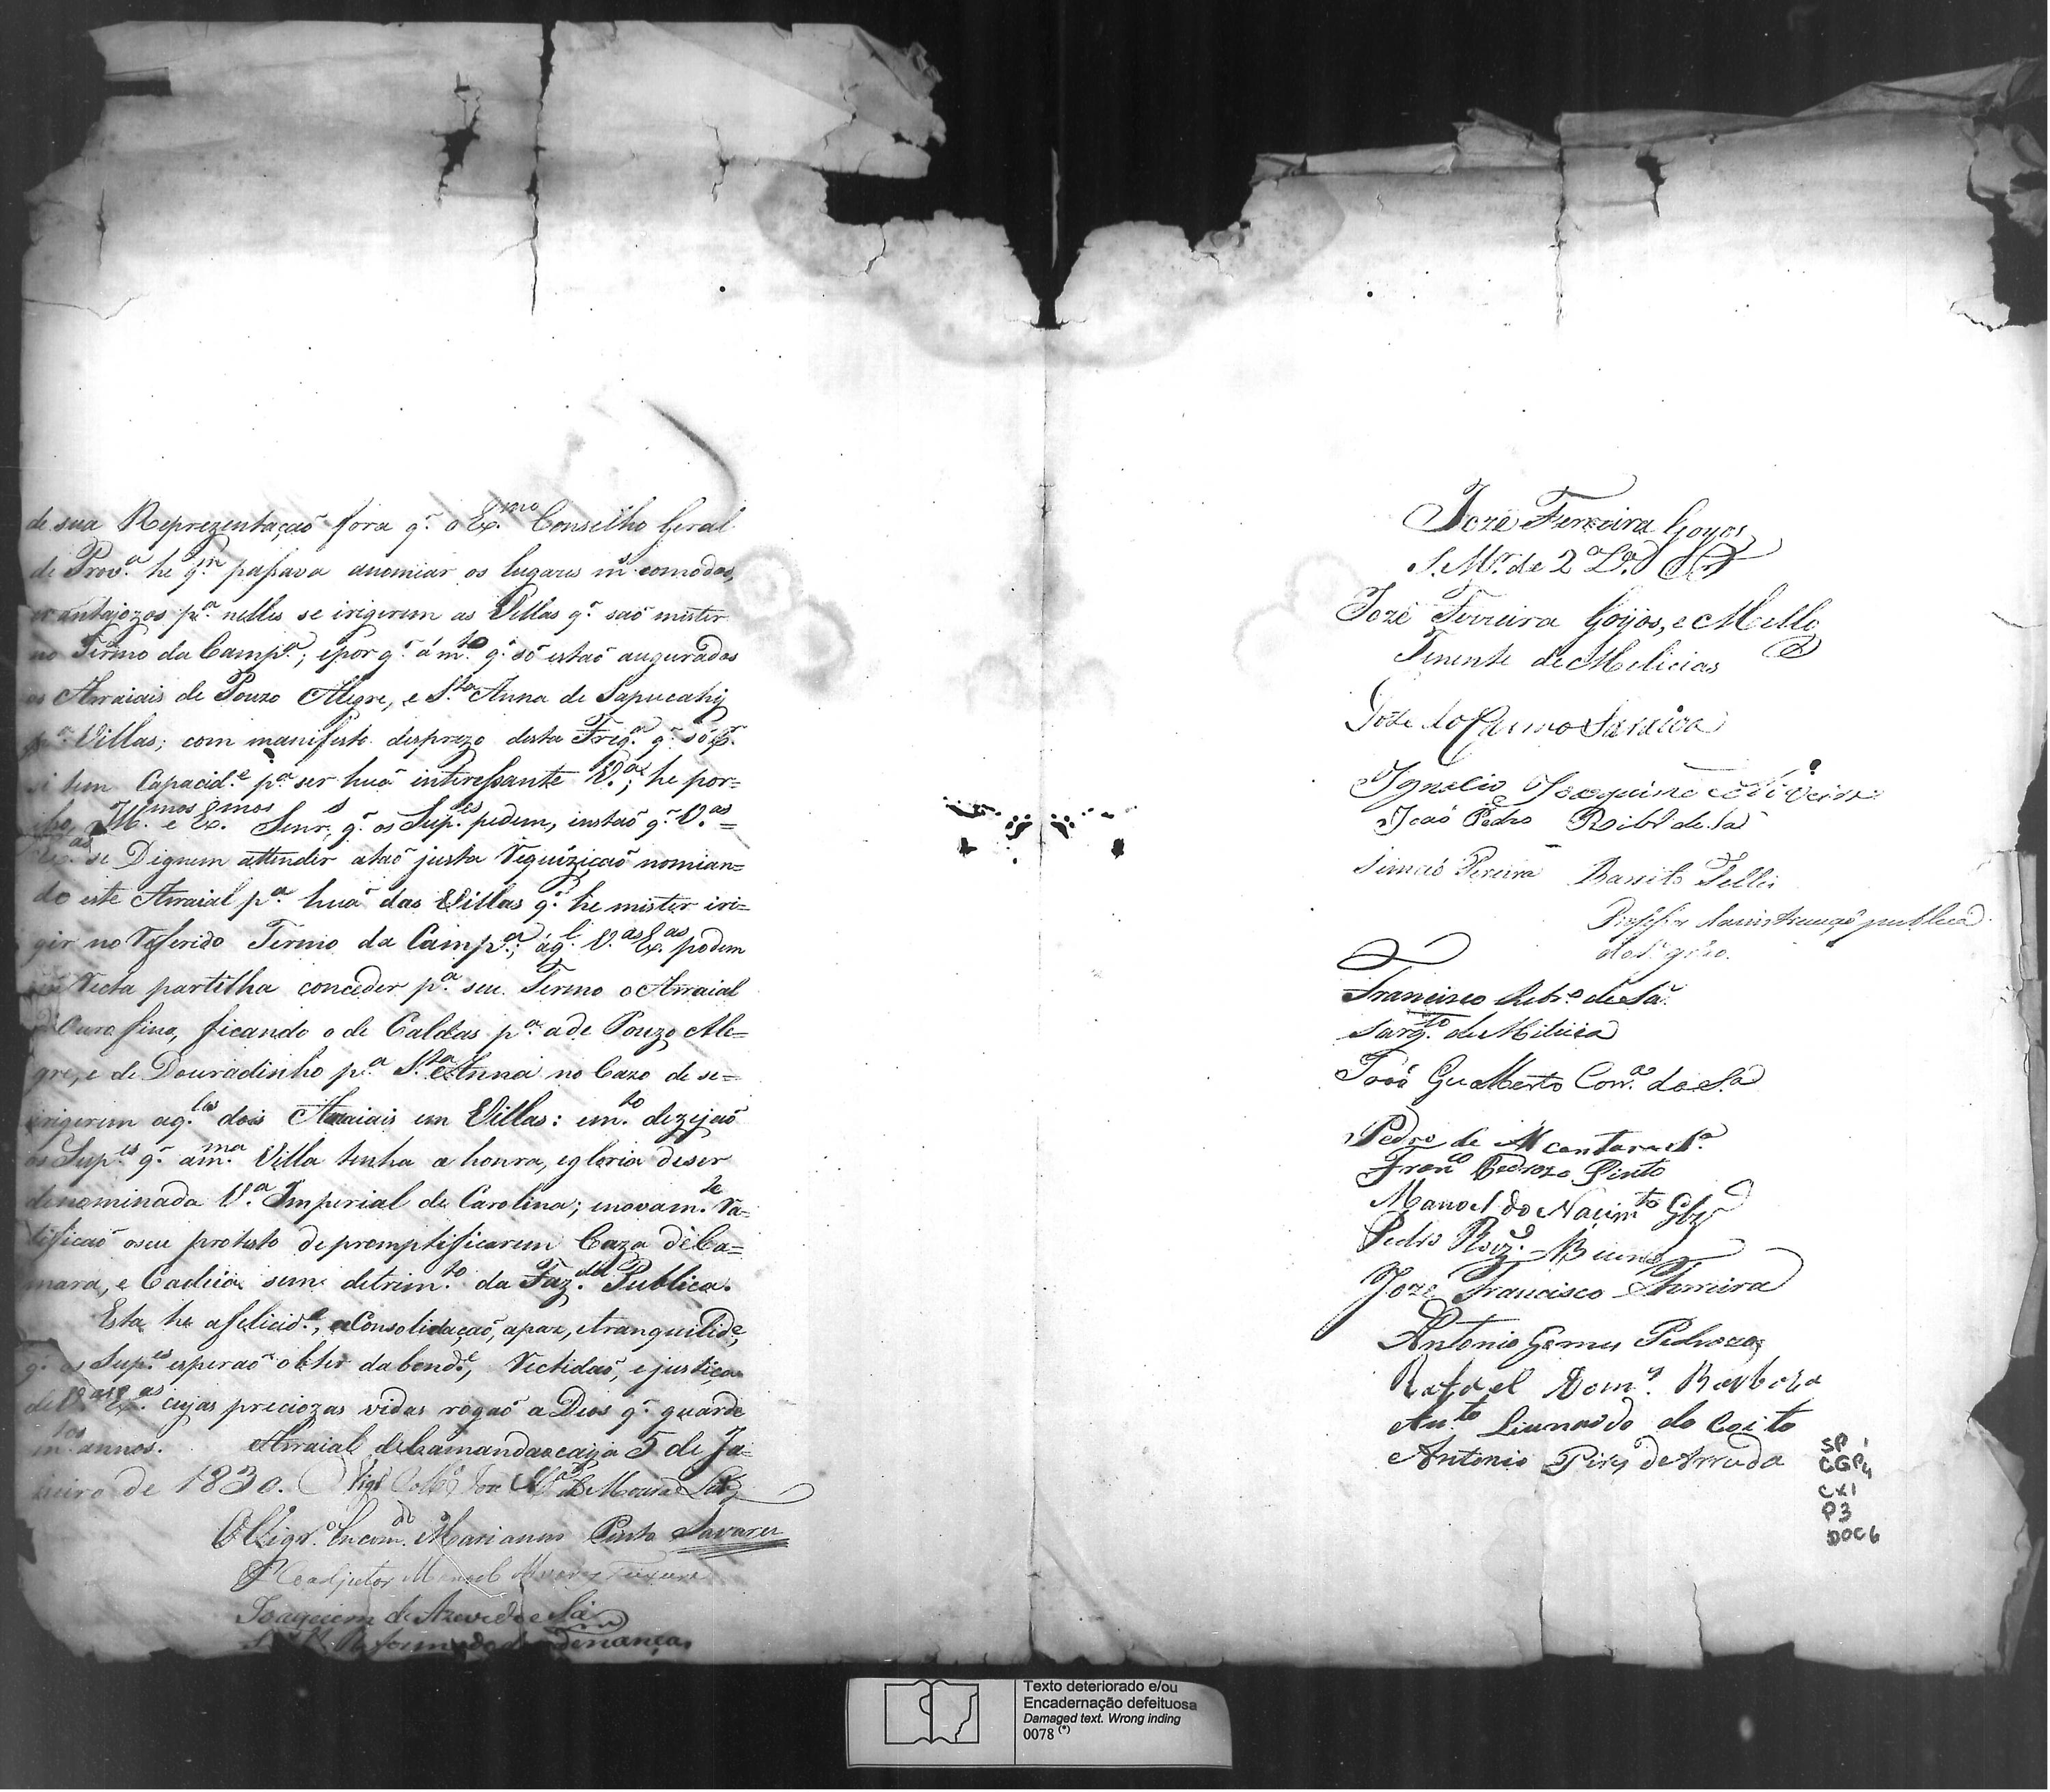 de sua Reprezentação fora q. o Ex.mo Conselho Geral
de Prov.a he q.m passava anomiar os lugares m.s comodos,
evantajozos p.a nelles se irigerem as Villas q. saõ mister
no Termo da Camp.a; epor q. á m.to q. só estaõ augurados
os Arraiais de Pouzo Alegre, e S.ta Anna de Sapucahy
p.a Villas; com manifesto desprezo desta Freg.a q. só p.
si tem Capacid.e p.a ser huã interessante V.a; he por-
isso Ill.mos e Ex.mos Senr.s q. os Sup.es pedem, instaõ q. V.as
Ex.as se Dignem attender ataõ justa Requizicaõ nomian=
do este Arraial p.a huã das Villas q. he mister iri=
gir no Referido Termo da Camp.a; áq.l V.as Ex.as podem
Recta partilha conceder p.a seu Termo o Arraial
Ouro fino, ficando o de Caldas p.a ade Pouzo Ale=
gre, e de Douradinho p.a S.ta Anna no Cazo de se=
irigerem aq.les dois Arraiais em Villas: em.to dezejaõ
os Sup.es q. am.ma Villa tenha a honra, egloria deser
denominada V.a Imperial de Carolina; enovam.te Ra-
tificaõ oseu protesto depromptificarem Caza deCa=
mara, e Cadeia sem detrim.to da Faz.da Publica.
Esta he afelicid.e, aConsolidaçaõ, apaz, etranquilid.e,
q. os Sup.es esperaõ obter dabond.e, Rectidaõ, ejustiça
de V.as Ex.as cujas preciozas vidas rogaõ a Deos q. guarde
m.tos annos. Arraial deCamandaocaya 5 de Ja-
neiro de 1830. O Vigr.o Joze de Moura
O Vigr.o Encom.do Marianno Pinto Tavares
O Coadjutor Manoel Alvares Teixeira
Joaquim de Azevedo e Sá
Reformado de Ordenanças
Joze Ferreira Goyos
S. M.r de 2.a L.a
Joze Ferreira Goyos, e Mello
Tenente de Melicias
Joze do Carmo Saraiva
Ignacio Joaquim de Oliveira
Joaõ Pedro Rib.ro de Sá
Simaõ Pereira Barreto Telles
Professor publica
Francisco Rebr.o de Sá
Sarg.to de Milicia
Joaõ Gualberto Corr.a de Sá
Pedro de Alcantara
Fran.co Pedrozo Pinto
Manoel do Nacim.to
Pedro Roiz. Bueno
Jozé Francisco Ferreira
Antonio Gomes Pedrozo
Rafael Dom.s Barboza
An.to Liunardo do Coito
Antonio Pires de Arruda
SP
CGP4
CX1
P3
DOC6
Texto deteriorado e/ou
Encadernação defeituosa
Damaged text. Wrong inding
0078 (*)